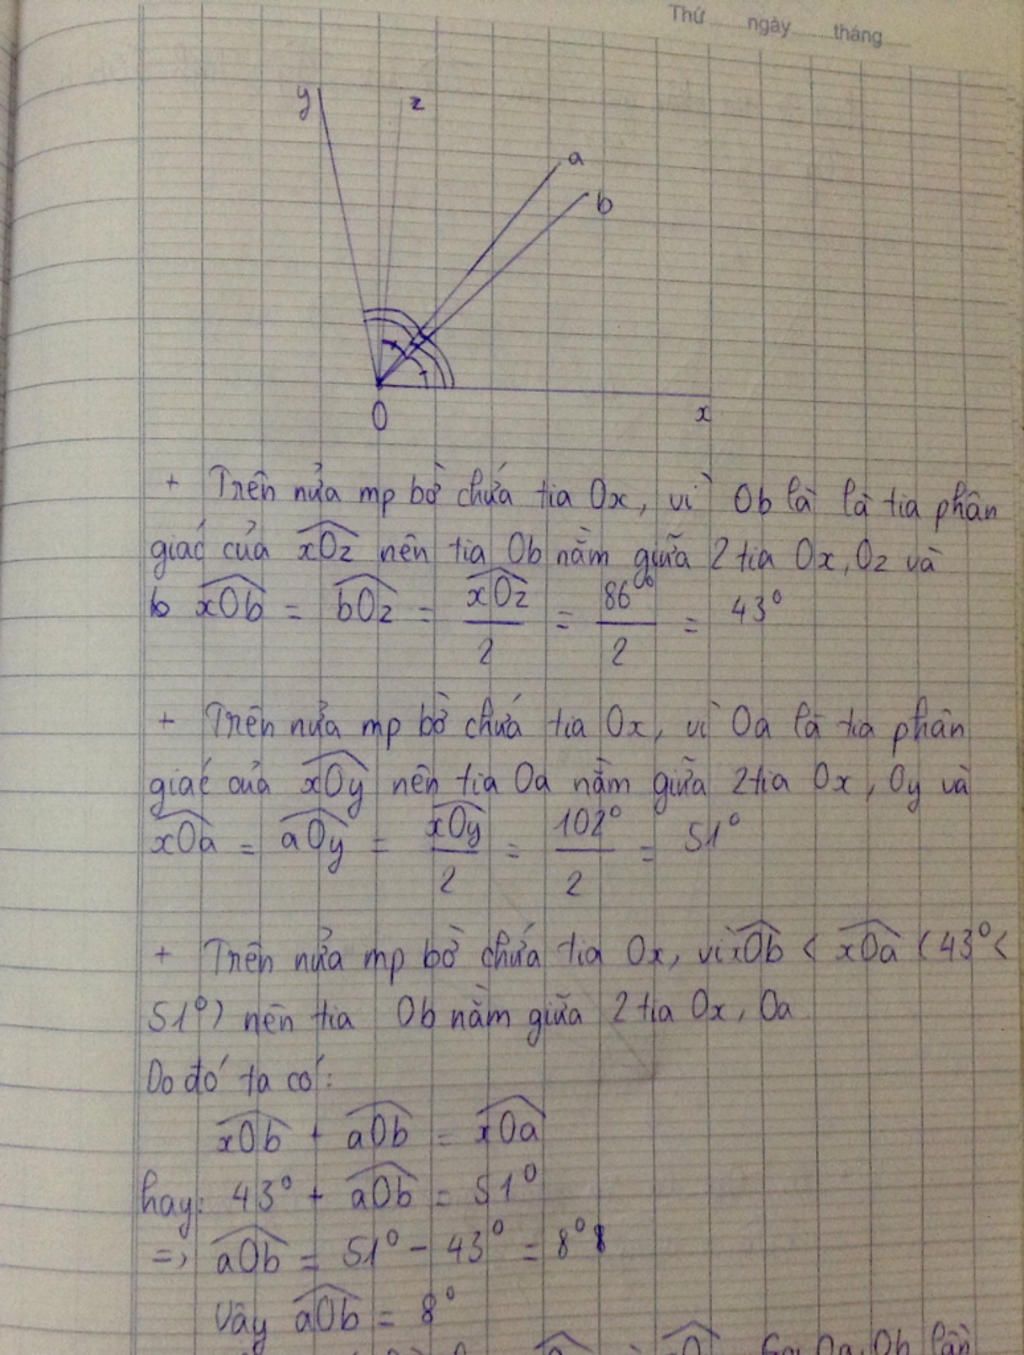 Thứ ngày tháng
y z
a
b
O x
+ Trên nửa mp bờ chứa tia Ox, vì Ob là là tia phân
giác của xOz nên tia Ob nằm giữa 2 tia Ox, Oz và
b xOb = bOz = xOz/2 = 86°/2 = 43°
+ Trên nửa mp bờ chứa tia Ox, vì Oa là tia phân
giác của xOy nên tia Oa nằm giữa 2 tia Ox, Oy và
xOa = aOy = xOy/2 = 102°/2 = 51°
+ Trên nửa mp bờ chứa tia Ox, vì xOb < xOa (43° <
51°) nên tia Ob nằm giữa 2 tia Ox, Oa
Do đó ta có:
xOb + aOb = xOa
hay: 43° + aOb = 51°
=> aOb = 51° - 43° = 8°
Vậy aOb = 8°